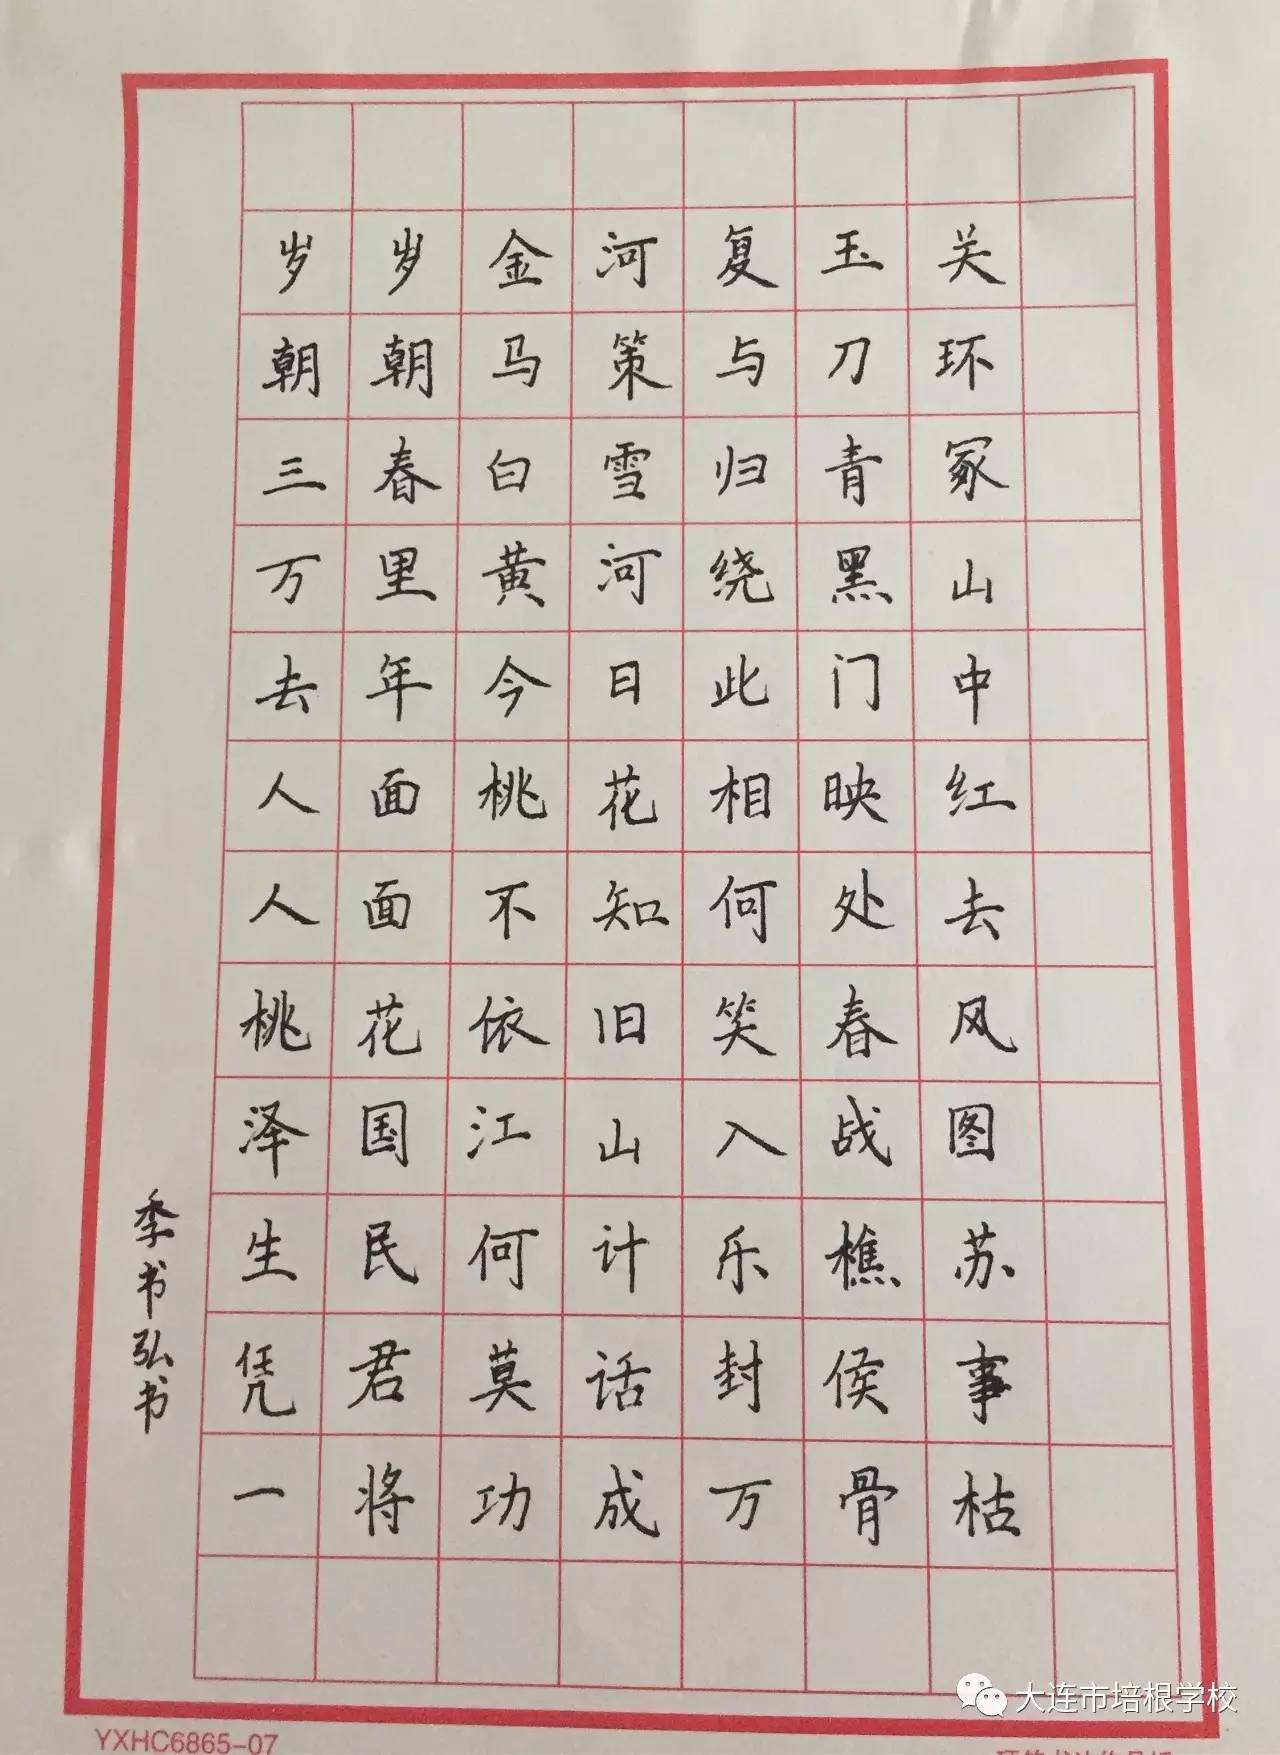 岁岁金河复玉关
朝朝马策与刀环
三春白雪归青冢
万里黄河绕黑山
去年今日此门中
人面桃花相映红
人面不知何处去
桃花依旧笑春风
泽国江山入战图
生民何计乐樵苏
凭君莫话封侯事
一将功成万骨枯
季书弘书
YXHC6865-07
大连市培根学校